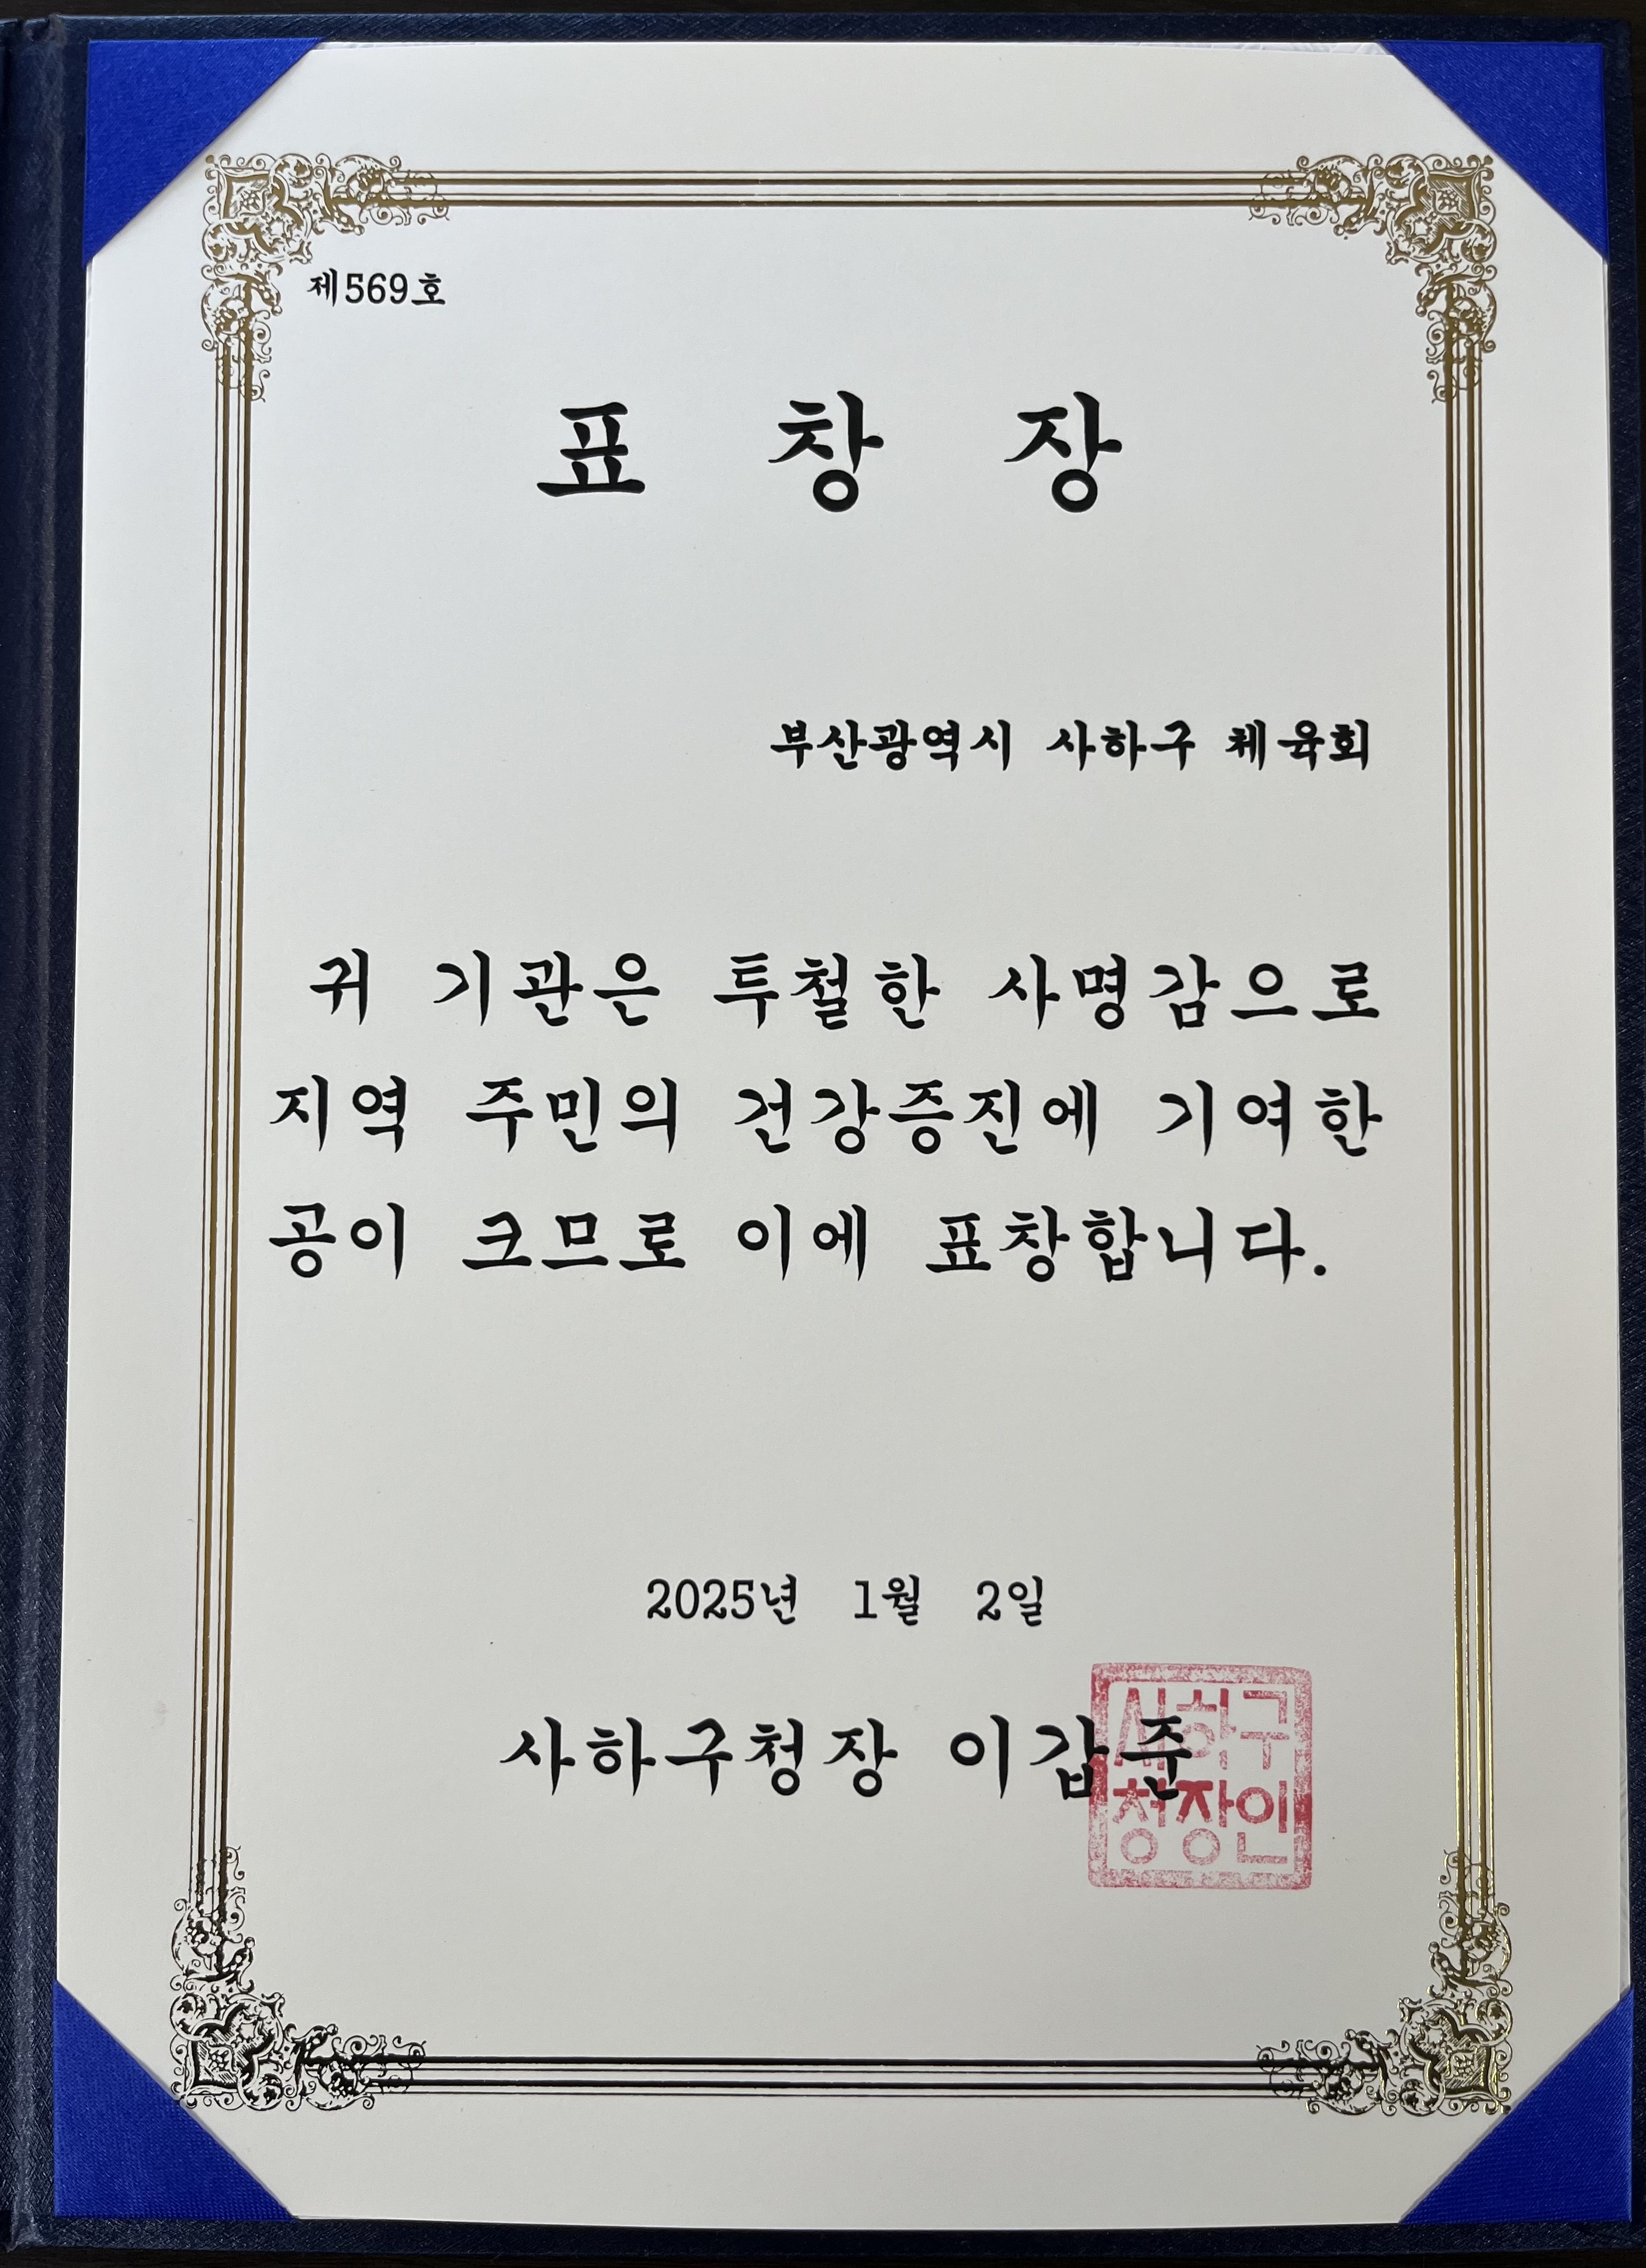 제569호
표 창 장
부산광역시 사하구 체육회
귀 기관은 투철한 사명감으로
지역 주민의 건강증진에 기여한
공이 크므로 이에 표창합니다.
2025년 1월 2일
사하구청장 이갑준
사하구
청장인